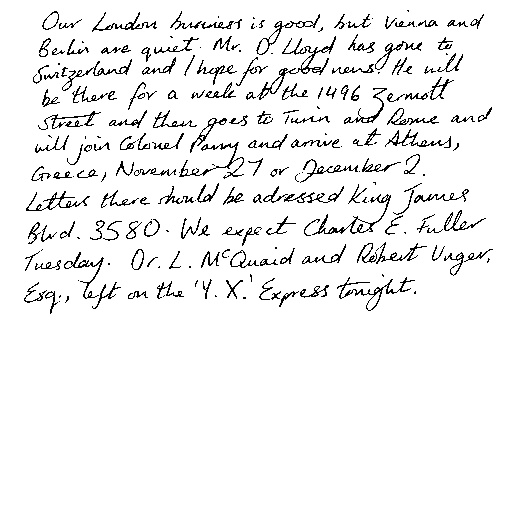 Our London business is good, but Vienna and
Berlin are quiet. Mr. D. Lloyd has gone to
Switzerland and I hope for good news. He will
be there for a week at the 1496 Zermott
Street and then goes to Turin and Rome and
will join Colonel Parry and arrive at Athens,
Greece, November 27 or December 2.
Letters there should be adressed King James
Blvd. 3580. We expect Charles E. Fuller
Tuesday. Dr. L. McQuaid and Robert Unger,
Esq., left on the 'Y.X.' Express tonight.